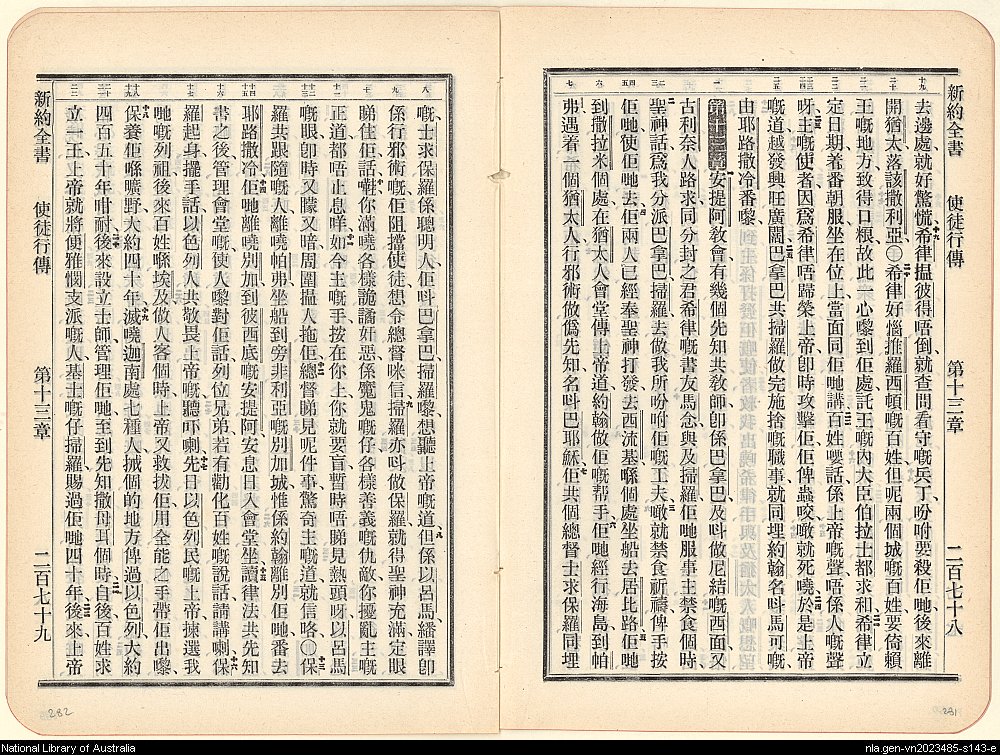 新約全書 使徒行傳 第十三章 二百七十八
去邊處就好驚慌希律搵彼得唔倒就查問看守嘅兵丁吩咐要殺佢哋後來離
開猶太落該撒利亞希律好惱推羅西頓嘅百姓但呢兩個城嘅百姓要倚賴
王嘅地方致得口粮故此一心嚟到佢處託王嘅內大臣伯拉士都求和希律立
定日期着番朝服坐在位上當面同佢哋講百姓嘜話係上帝嘅聲唔係人嘅聲
呀主嘅使者因爲希律唔歸榮上帝卽時攻擊佢俾蟲咬噉就死嘵於是上帝
嘅道越發興旺廣闊巴拿巴共掃羅做完施捨嘅職事就同埋約翰名呌馬可嘅
由耶路撒冷番嚟
第十三章安提阿敎會有幾個先知共敎師卽係巴拿巴及呌做尼結嘅西面又
古利奈人路求同分封之君希律嘅書友馬念與及掃羅佢哋服事主禁食個時
聖神話爲我分派巴拿巴掃羅去做我所吩咐佢嘅工夫噉就禁食祈禱俾手按
佢哋使佢哋去佢兩人已經奉聖神打發去西流基喺個處坐船去居比路佢哋
到撒拉米個處在猶太人會堂傳上帝道約翰做佢嘅帮手佢哋經行海島到帕
弗遇着一個猶太人行邪術做僞先知名呌巴耶穌佢共個總督士求保羅同埋
新約全書 使徒行傳 第十三章 二百七十九
嘅士求保羅係聰明人佢呌巴拿巴掃羅嚟想聽上帝嘅道但係以呂馬繙譯卽
係行邪術嘅佢阻擋使徒想令總督咪信掃羅亦呌做保羅就得聖神充滿定眼
睇住佢話囉你滿嘵各樣詭譎奸惡係魔鬼嘅仔各樣善義嘅仇敵你擾亂主嘅
正道都唔止息咩如今主嘅手按在你上你就要盲暫時唔睇見熱頭呀以呂馬
嘅眼卽時又矇又暗周圍搵人拖佢總督睇見呢件事驚奇主嘅道就信咯保
羅共跟隨嘅人離嘵帕弗坐船到旁非利亞嘅別加城惟係約翰離別佢哋番去
耶路撒冷佢哋離嘵別加到彼西底嘅安提阿安息日入會堂坐讀律法共先知
書之後管理會堂嘅使人嚟對佢話列位兄弟若有勸化百姓嘅說話請講喇保
羅起身擺手話以色列人共敬畏上帝嘅聽吓喇先日以色列民嘅上帝揀選我
哋嘅列祖後來百姓喺埃及做人客個時上帝又救拔佢用全能之手帶佢出嚟
保養佢喺曠野大約四十年滅嘵迦南處七種人搣個的地方俾過以色列大約
四百五十年咁耐後來設立士師管理佢哋至到先知撒母耳個時自後百姓求
立一王上帝就將便雅憫支派嘅人基士嘅仔掃羅賜過佢哋四十年後來上帝
282
281
National Library of Australia
nla.gen-vn2023485-s143-e